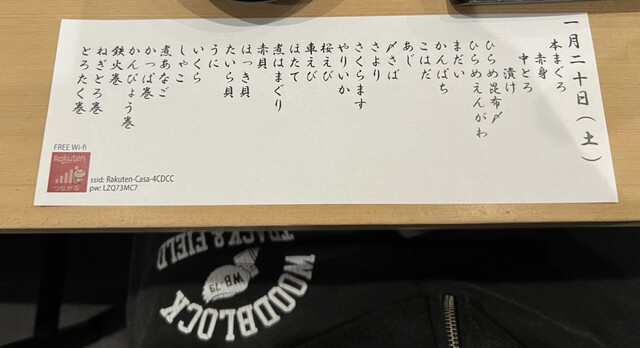 一月二十日(土)
本まぐろ
赤身
中とろ
漬け
ひらめ昆布〆
ひらめえんがわ
まだい
かんぱち
こはだ
あじ
〆さば
さより
さくらます
やりいか
桜えび
車えび
ほたて
煮はまぐり
赤貝
ほっき貝
たいら貝
うに
いくら
しゃこ
煮あなご
かっぱ巻
かんぴょう巻
鉄火巻
ねぎとろ巻
とろたく巻
FREE Wi-fi
Rakuten
つながる
ssid: Rakuten-Casa-4CDCC
pw: LZQ73MC7
TRACK & FIELD
WB-79
WOODBLOCK